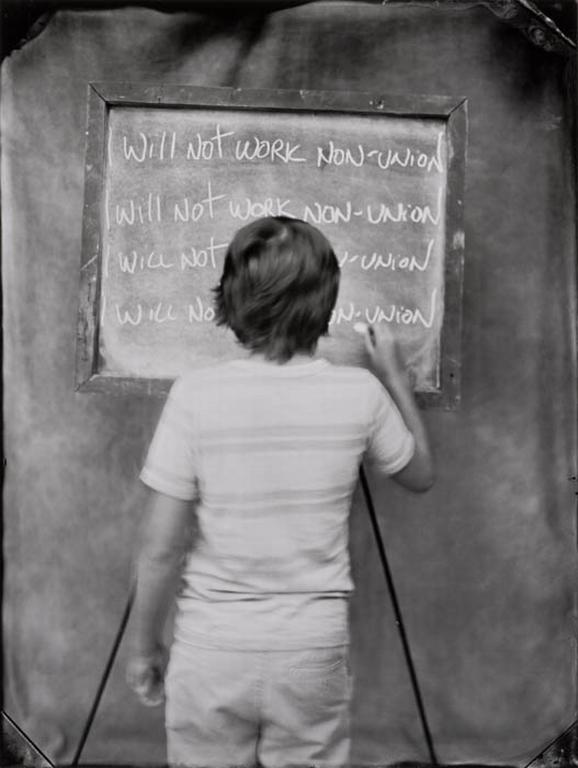 I Will Not WORK NON-UNION
I Will Not WORK NON-UNION
I WILL Not N-UNION
I WILL No ON-UNION